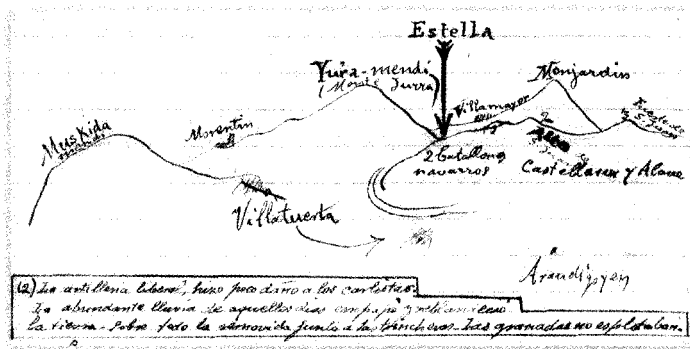 Estella
Yura-mendi
(Monte Jurra)
Monjardin
Villamayor
Muskida
Morentin
2
2 batallones
navarros
Castellanos y Alava
Villatuerta
(2) La artilleria liberal, hizo poco daño a los carlistas.
La abundante lluvia de aquellos dias empapó y
la tierra. Sobre todo la removida junto a las trincheras. Las granadas no explotaban.